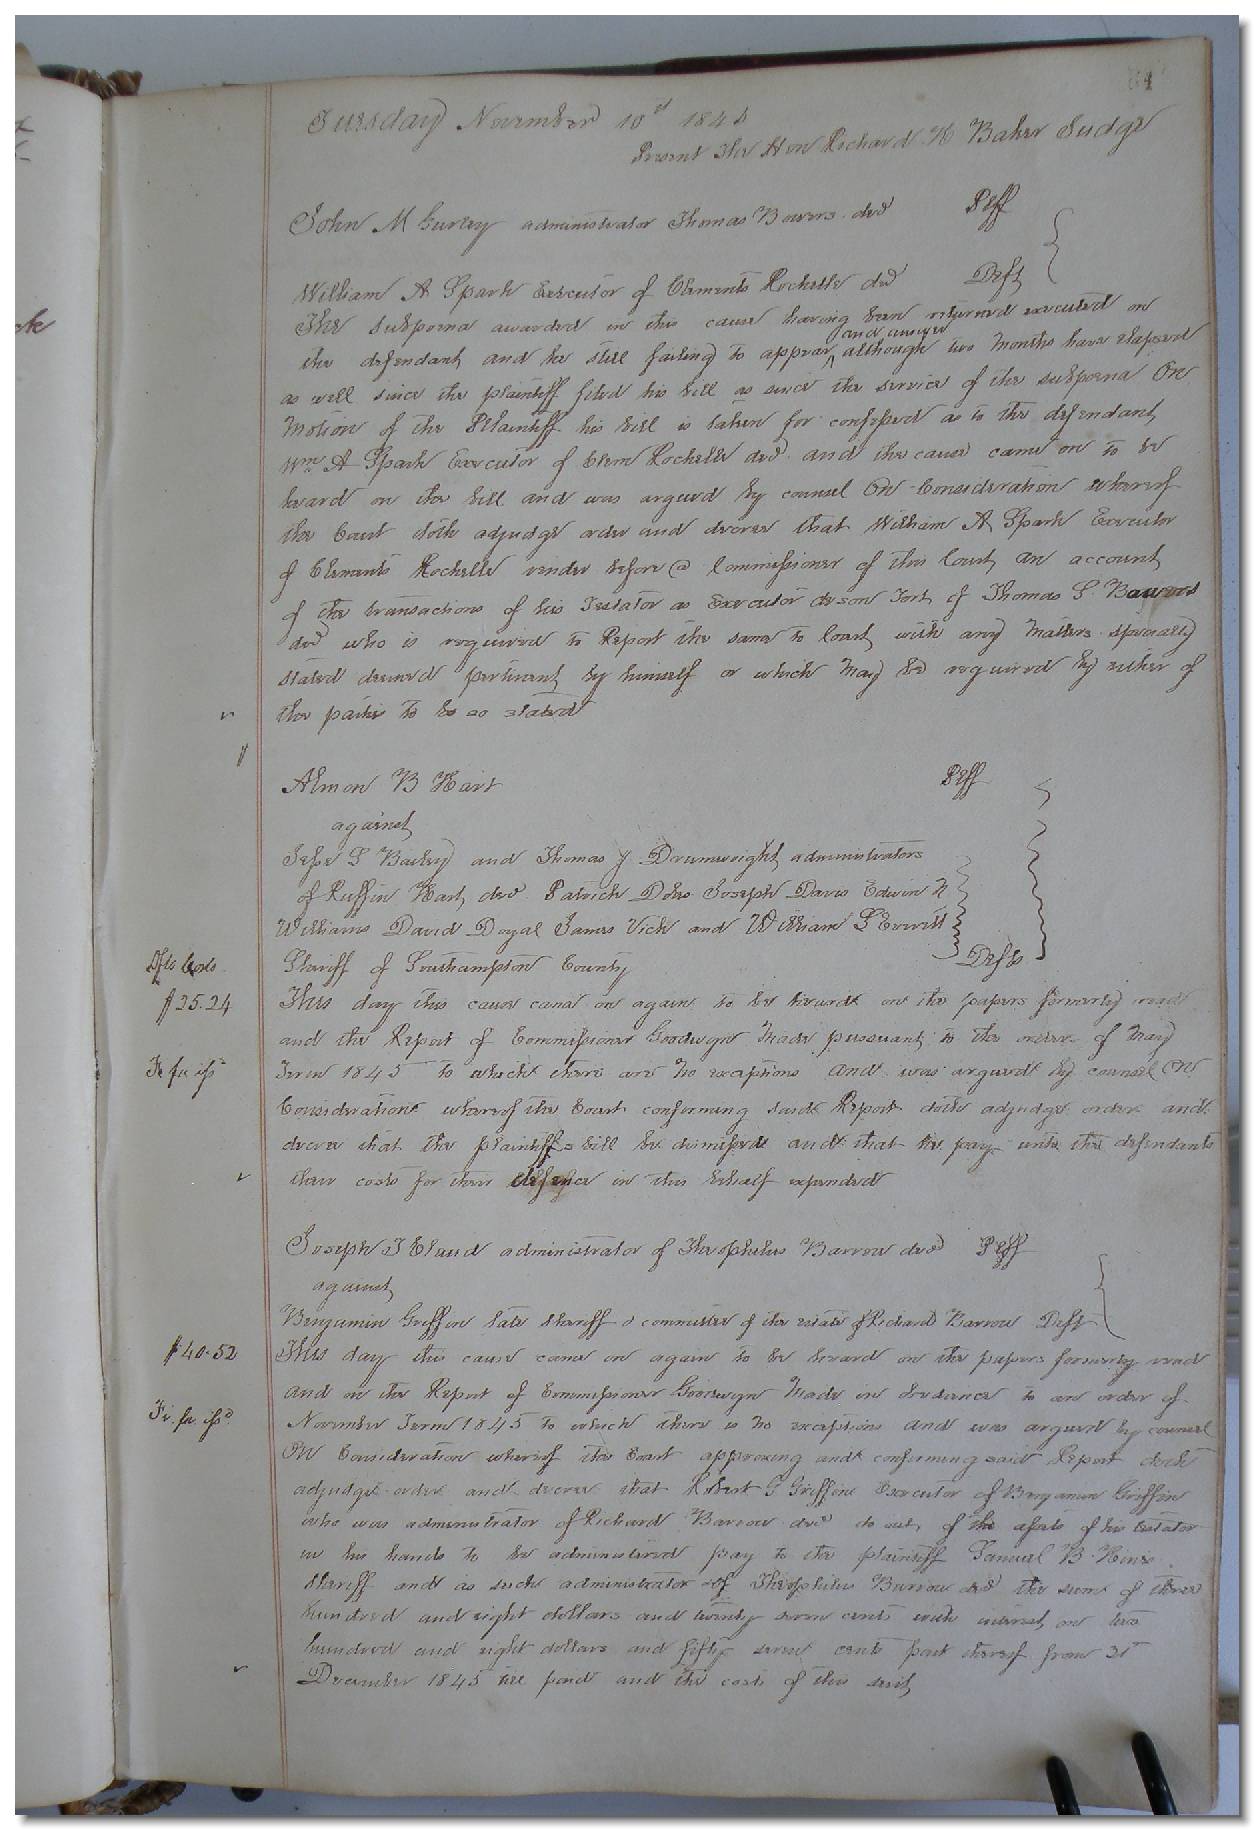 64
Tuesday November 10th 184
Present The Hon Richard H Baker Judge
John M Gurley administrator Thomas Bowers decd Plff
William A Spark Executor of Clements Rochelle decd Deft
The subpoena awarded in this cause having been returned executed on
the defendant and he still failing to appear and answer although two months have elapsed
as well since the plaintiff filed his bill as since the service of the subpoena On
Motion of the Plaintiff his bill is taken for confessed as to the defendant
Wm A Spark Executor of Clem Rochelle decd and the cause came on to be
heard on the bill and was argued by counsel On Consideration whereof
the Court doth adjudge order and decree that William A Spark Executor
of Clements Rochelle render before a Commissioner of this Court an account
of the transactions of his Testator as Executor de son Tort of Thomas S Bowers
decd who is required to Report the same to Court with any matters specially
stated deemed pertinent by himself or which may be required by either of
the parties to be so stated
Almon B Hart Plff
against
Jesse S Barkey and Thomas J Drumwright administrators
of Ruffin Hart decd Patrick Doles Joseph Davis Edwin N
Williams David Doyal James Vick and William S Everitt
Sheriff of Southampton County Defts
Dfts Costs
$25.24
This day this cause came on again to be heard on the papers formerly read
and the Report of Commissioner Goodwyn Made pursuant to the order of May
Fi fa iss
Term 1845 to which there are no exceptions and was argued by counsel On
Consideration whereof the Court confirming said Report doth adjudge order and
decree that the plaintiffs bill be dismissed and that he pay unto the defendants
their costs for their defence in this behalf expended
Joseph T Claud administrator of Theophilus Barrow decd Plff
against
Benjamin Griffin late sheriff & committee of the estate of Richard Barrow Deft
$40.52
This day this cause came on again to be heard on the papers formerly read
and on the Report of Commissioner Goodwyn Made in obedience to an order of
Fi. fa issd
November Term 1845 to which there is no exceptions and was argued by counsel
On Consideration whereof the Court approving and confirming said Report doth
adjudge order and decree that Robert G Griffin Executor of Benjamin Griffin
who was administrator of Richard Barrow decd do out of the assets of his testator
in his hands to be administered pay to the plaintiff Samuel B Hines
Sheriff and as such administrator of Theophilus Barrow decd the sum of three
hundred and eight dollars and twenty seven cents with interest on two
hundred and eight dollars and fifty seven cents part thereof from 31
December 1845 till paid and the costs of this suit